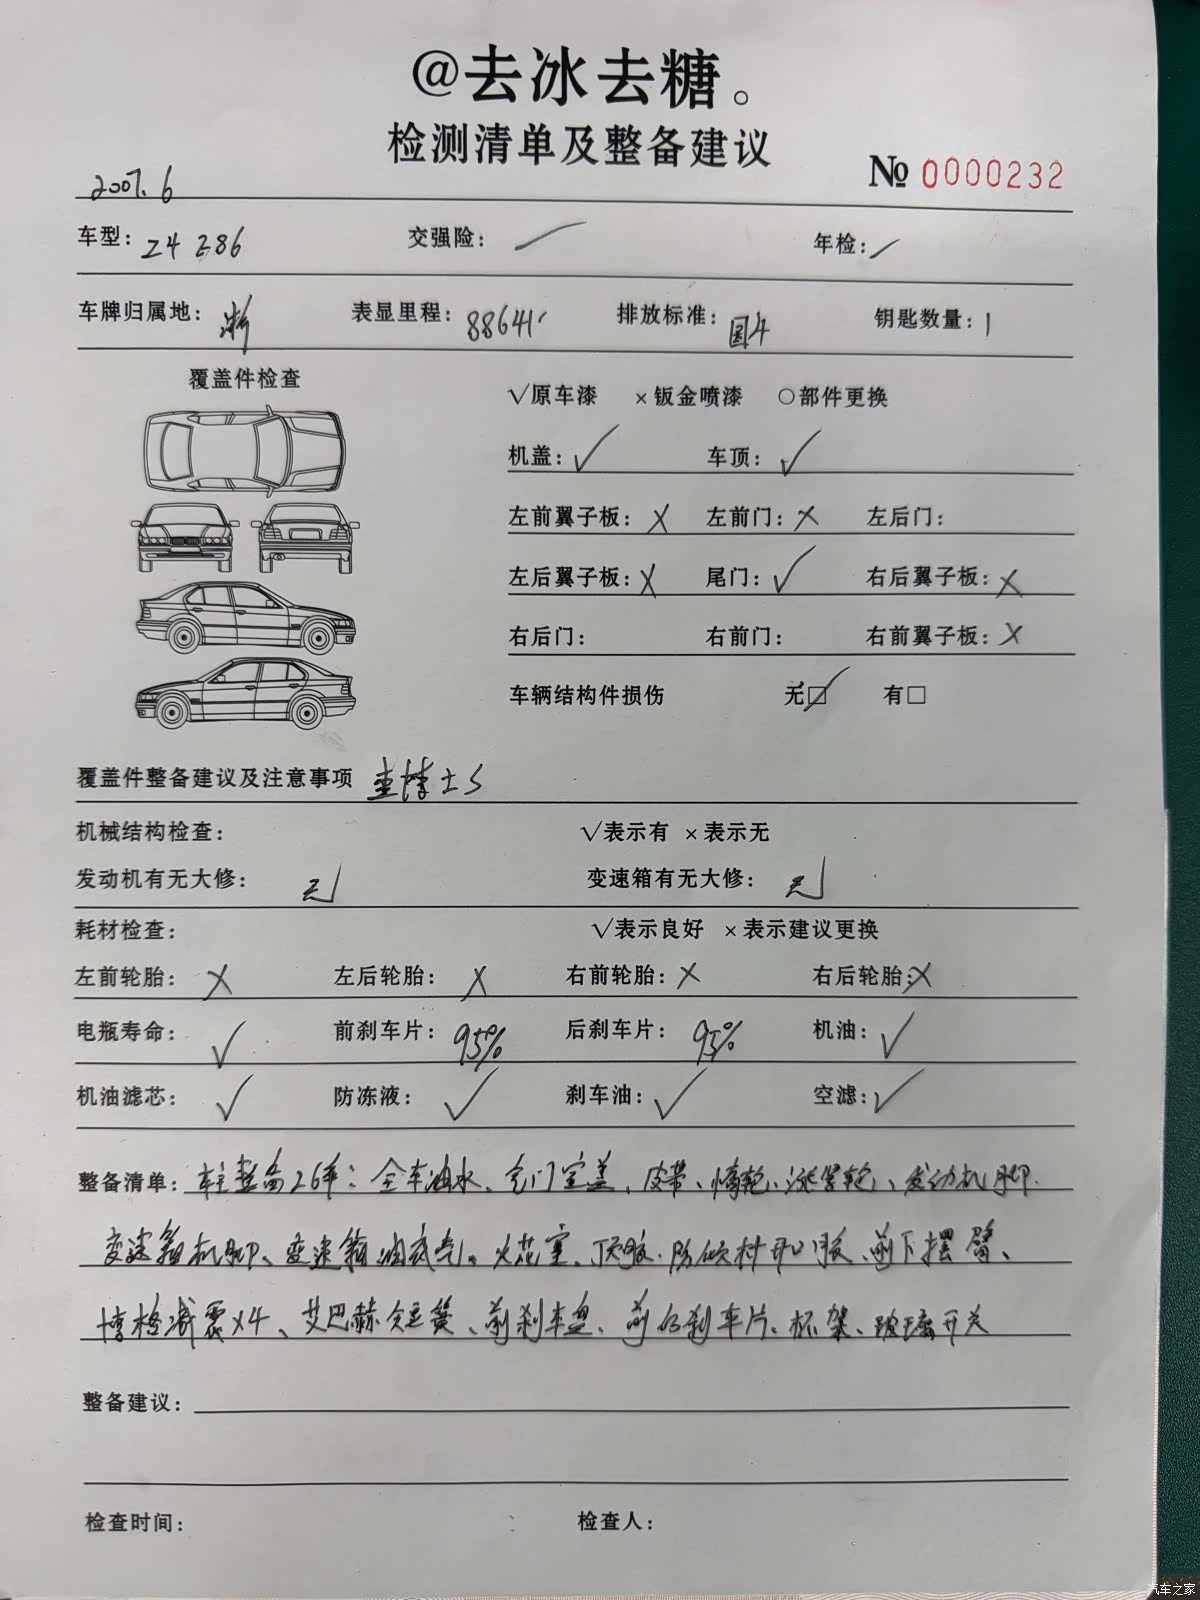 @去冰去糖。
检测清单及整备建议
№ 0000232
2007.6
车型: Z4 E86 交强险: 年检:
车牌归属地: 浙 表显里程: 88641 排放标准: 国4 钥匙数量: 1
覆盖件检查
√原车漆 ×钣金喷漆 ○部件更换
机盖: √ 车顶: √
左前翼子板: × 左前门: × 左后门:
左后翼子板: × 尾门: √ 右后翼子板: ×
右后门: 右前门: 右前翼子板: ×
车辆结构件损伤 无☑ 有□
覆盖件整备建议及注意事项 博士S
机械结构检查: √表示有 ×表示无
发动机有无大修: 无 变速箱有无大修: 无
耗材检查: √表示良好 ×表示建议更换
左前轮胎: × 左后轮胎: × 右前轮胎: × 右后轮胎: ×
电瓶寿命: √ 前刹车片: 95% 后刹车片: 95% 机油: √
机油滤芯: √ 防冻液: √ 刹车油: √ 空滤: √
整备清单: 车主整备26年: 全车油水、气门室盖、皮带、惰轮、涨紧轮、发动机脚、
变速箱机脚、变速箱油底壳、火花塞、顶胶、防倾杆开口胶、前下摆臂、
博格减震X4、艾巴赫短簧、前刹车盘、前后刹车片、杯架、玻璃开关
整备建议:
检查时间: 检查人:
汽车之家